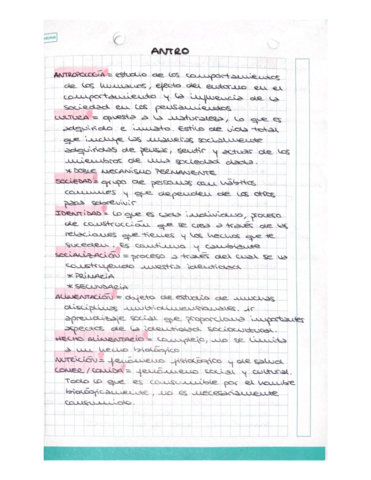 ANTRO
ANTROPOLOGÍA = estudio de los comportamientos
de los humanos, efecto del entorno en el
comportamiento y la influencia de la
sociedad en los pensamientos
CULTURA = opuesta a la naturaleza, lo que es
adquirido e innato. Estilo de vida total
que incluye las maneras socialmente
adquiridas de pensar, sentir y actuar de los
miembros de una sociedad dada.
* DOBLE MECANISMO PERMANENTE
SOCIEDAD = grupo de personas con hábitos
comunes y que dependen de los otros
para sobrevivir
IDENTIDAD = lo que es cada individuo, proceso
de construcción que se crea a través de las
relaciones que tienes y los hechos que te
suceden. Es continuo y cambiante
SOCIALIZACIÓN = proceso a través del cual se va
construyendo nuestra identidad
* PRIMARIA
* SECUNDARIA
ALIMENTACIÓN = objeto de estudio de muchas
disciplinas multidimensionales. Ir
aprendizaje social que proporciona importantes
aspectos de la identidad sociocultural.
HECHO ALIMENTARIO = complejo, no se limita
a un hecho biológico
NUTRICIÓN = fenómeno fisiológico y de salud
COMER / COMIDA = fenómeno social y cultural.
Todo lo que es consumible por el hombre
biológicamente, no es necesariamente
consumido.